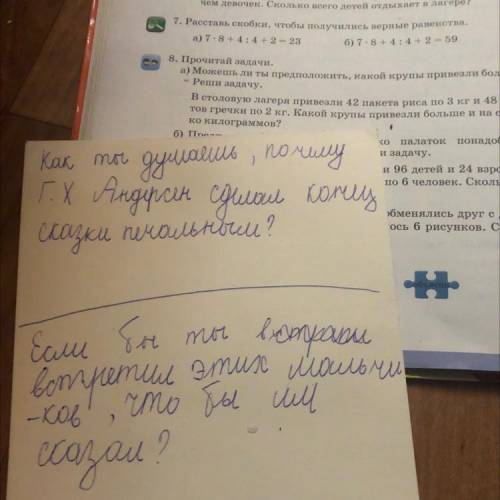 чем девочек. Сколько всего детей отдыхает в лагере?
7. Расставь скобки, чтобы получились верные равенства.
а) 7 · 8 + 4 : 4 + 2 = 23 б) 7 · 8 + 4 : 4 + 2 = 59
8. Прочитай задачи.
а) Можешь ли ты предположить, какой крупы привезли бол
– Реши задачу.
В столовую лагеря привезли 42 пакета риса по 3 кг и 48
тов гречки по 2 кг. Какой крупы привезли больше и на с
ко килограммов?
б)
ко палаток понадоб
и задачу.
и 96 детей и 24 взро
по 6 человек. Скол
обменялись друг с
ось 6 рисунков. С
Как ты думаешь, почему
Г. Х Андерсен сделал конец
сказки печальным?
Если бы ты
встретил этих мальчи
-ков, что бы им
сказал?